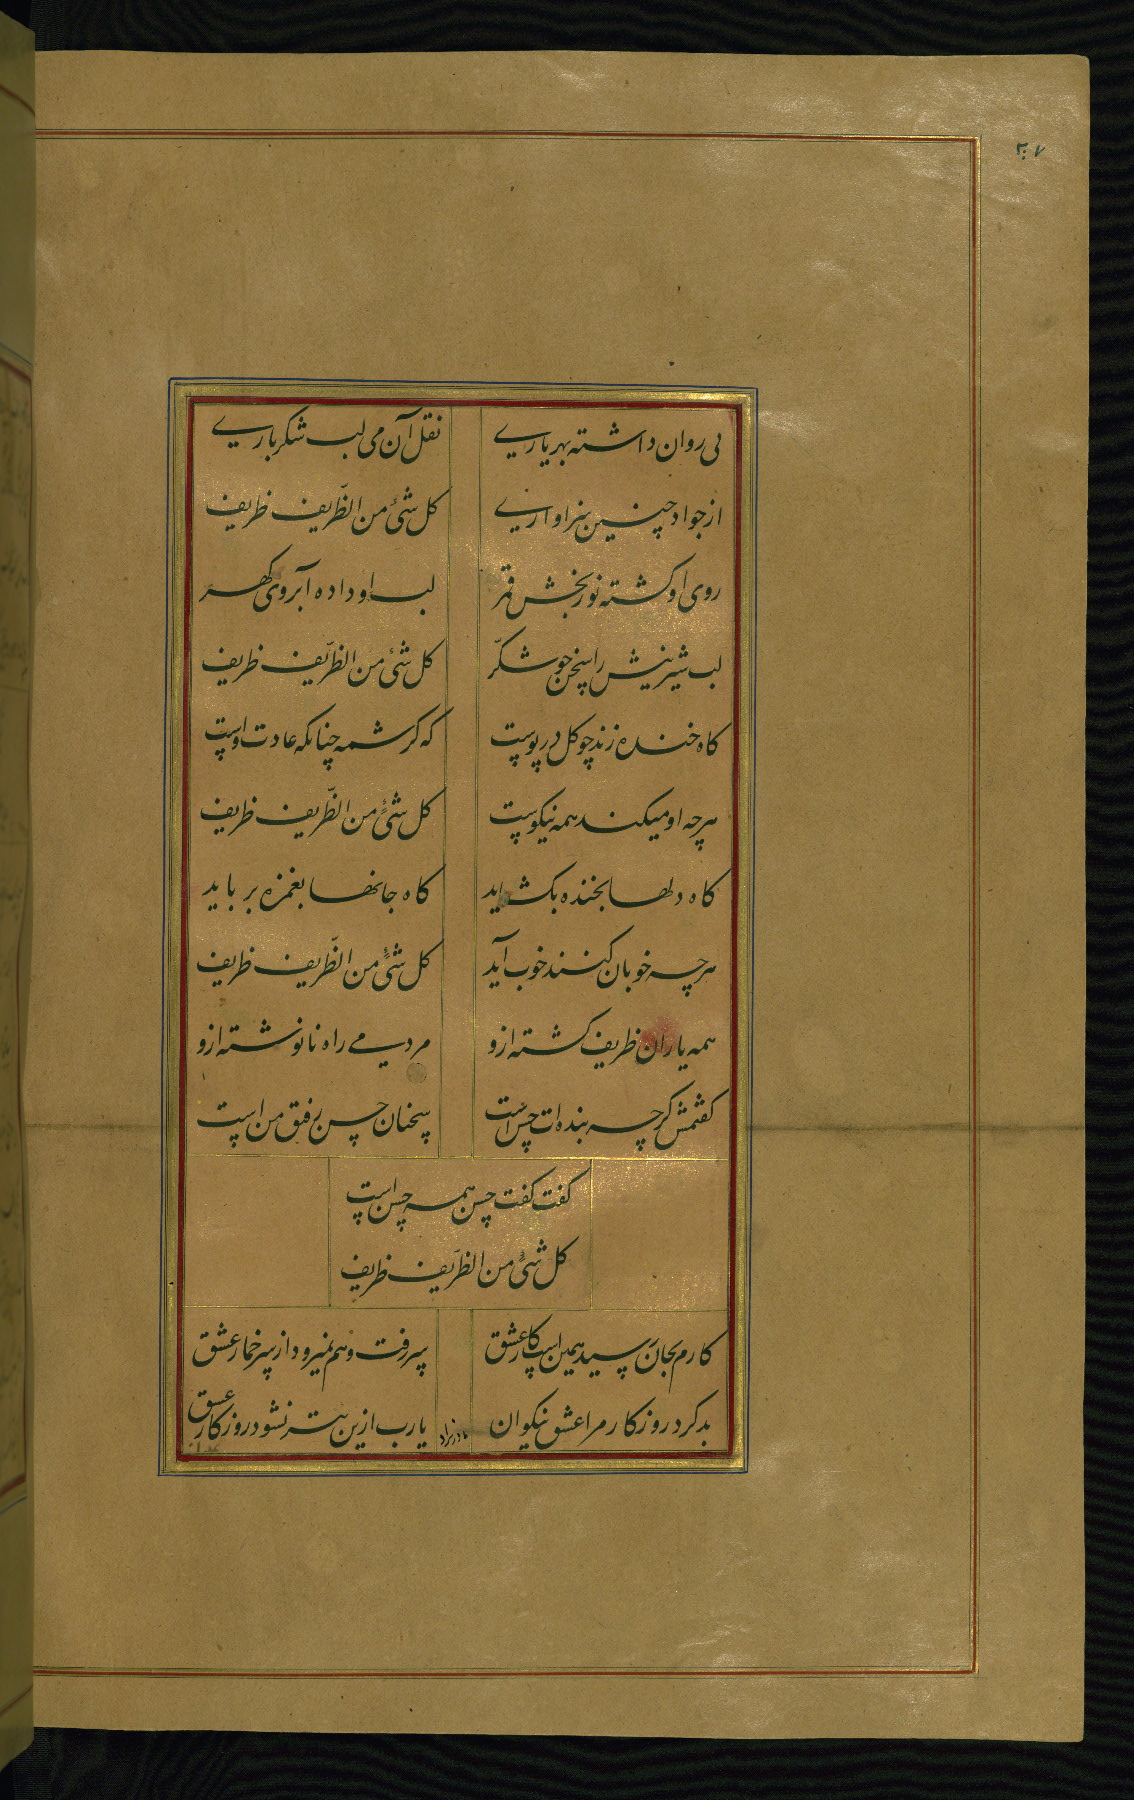 ۳۰۷
می روان داشته بهر یاری نقل آن می لب شکرباری
از جواد چنین سزاواری کل شئ من الظّریف ظریف
روی او گشته نوربخش قمر لب او داده آبروی گهر
لب شیرینش را سخن چو شکّر کل شئ من الظّریف ظریف
گاه خنده زند چو گل در پوست گه کرشمه چنانکه عادت اوست
هرچه او میکند همه نیکوست کل شئ من الظّریف ظریف
گاه دلها بخنده بکشاید گاه جانها بغمزه برباید
هرچه خوبان کنند خوب آید کل شئ من الظّریف ظریف
همه یاران ظریف گشته ازو مردمی راه نانوشته ازو
گفتمش گرچه بنده‌ات حسن است سخنان حسن رفیق من است
گفت گفت حسن همه حسن است
کل شئ من الظّریف ظریف
کارم بجان رسید همین است کار عشق سر رفت و هم نمیرود از سر خمار عشق
بد کرد روزگار مرا عشق نیکوان یارب ازین بتر نشود روزگار عشق